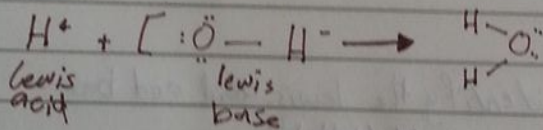 H⁺ + [ :Ö̤ — H⁻ ⟶ H O: H
Lewis acid
lewis base